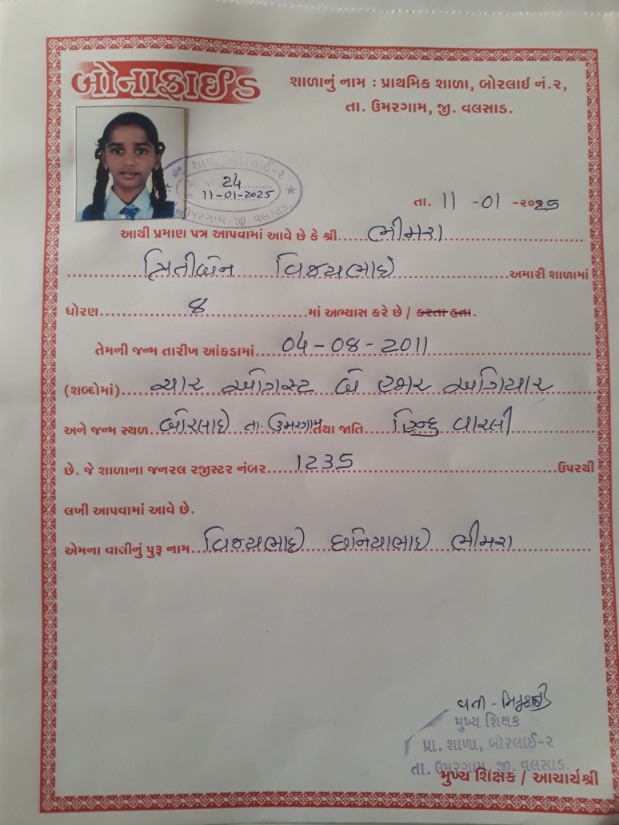 બોનાફાઈડ
શાળાનું નામ : પ્રાથમિક શાળા, બોરલાઈ નં.૨,
તા. ઉમરગામ, જી. વલસાડ.
શાળા, બોરલાઈ-૨
24
11-01-2025
ઉમરગામ જી વલસાડ
તા. 11 -01 -૨૦25
આથી પ્રમાણ પત્ર આપવામાં આવે છે કે શ્રી ભીમરા
વિજયભાઈ અમારી શાળામાં
ધોરણ 8 માં અભ્યાસ કરે છે / કરતા હતા.
તેમની જન્મ તારીખ આંકડામાં 04-08-2011
(શબ્દોમાં) ચાર ઓગસ્ટ બે હજાર અગિયાર
અને જન્મ સ્થળ બોરલાઈ તા. ઉમરગામ તથા જાતિ હિન્દુ વારલી
છે. જે શાળાના જનરલ રજીસ્ટર નંબર 1235 ઉપરથી
લખી આપવામાં આવે છે.
એમના વાલીનું પુરૂ નામ વિજયભાઈ છનિયાભાઈ ભીમરા
વતી -
મુખ્ય શિક્ષક
પ્રા. શાળા, બોરલાઈ-૨
તા. ઉમરગામ, જી. વલસાડ.
મુખ્ય શિક્ષક / આચાર્યશ્રી